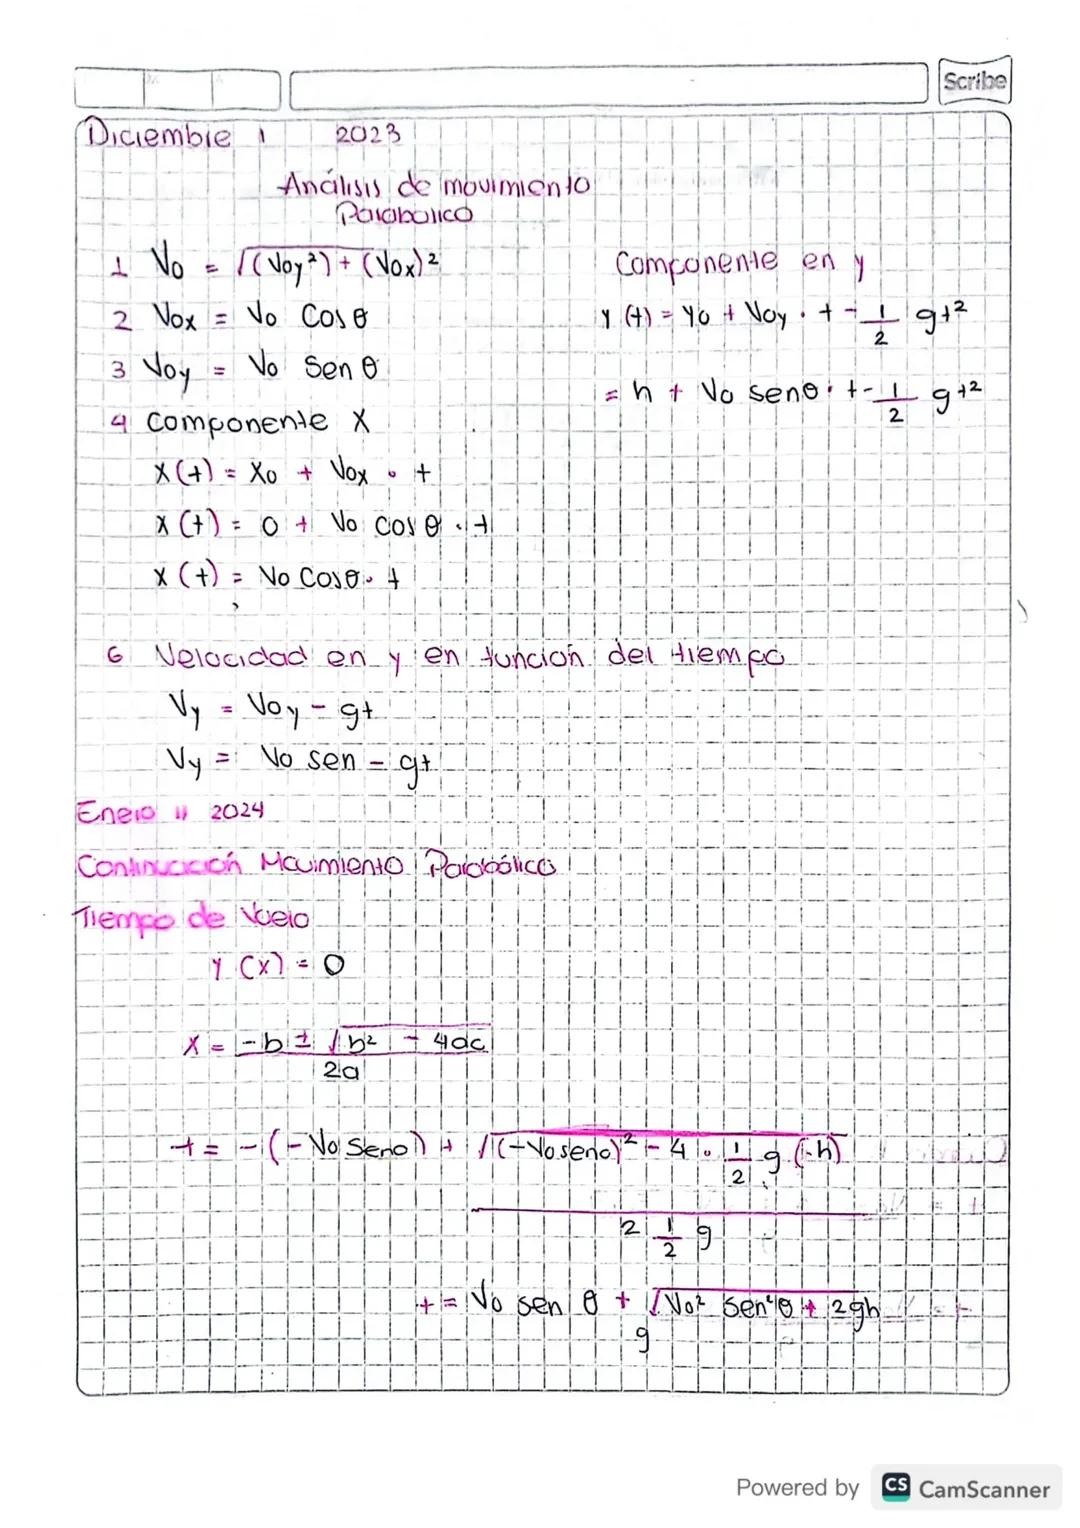 Scribe
Diciembre 1 2023
Análisis de movimiento
Parabolico
1 Vo = √(Voy²) + (Vox)²
2 Vox = Vo Cos θ
3 Voy = Vo Sen θ
4 Componente X
X(t) = Xo + Vox · t
X(t) = 0 + Vo cos θ · t
X(t) = Vo Cosθ · t
Componente en y
Y (t) = Yo + Voy · t - 1/2 gt²
= h + Vo senθ · t - 1/2 gt²
6 Velocidad en y en función del tiempo
Vy = Voy - gt
Vy = Vo sen - gt
Enero 11 2024
Continuación Movimiento Parabólico
Tiempo de Vuelo
Y (x) = 0
X = -b ± √b² - 4ac
2a
t = -(-Vo Senθ) + √(-Vo senθ)² - 4 · 1/2 g (-h)
2 1/2 g
t = Vo sen θ + √Vo² Sen²θ + 2gh
g
Powered by CS CamScanner